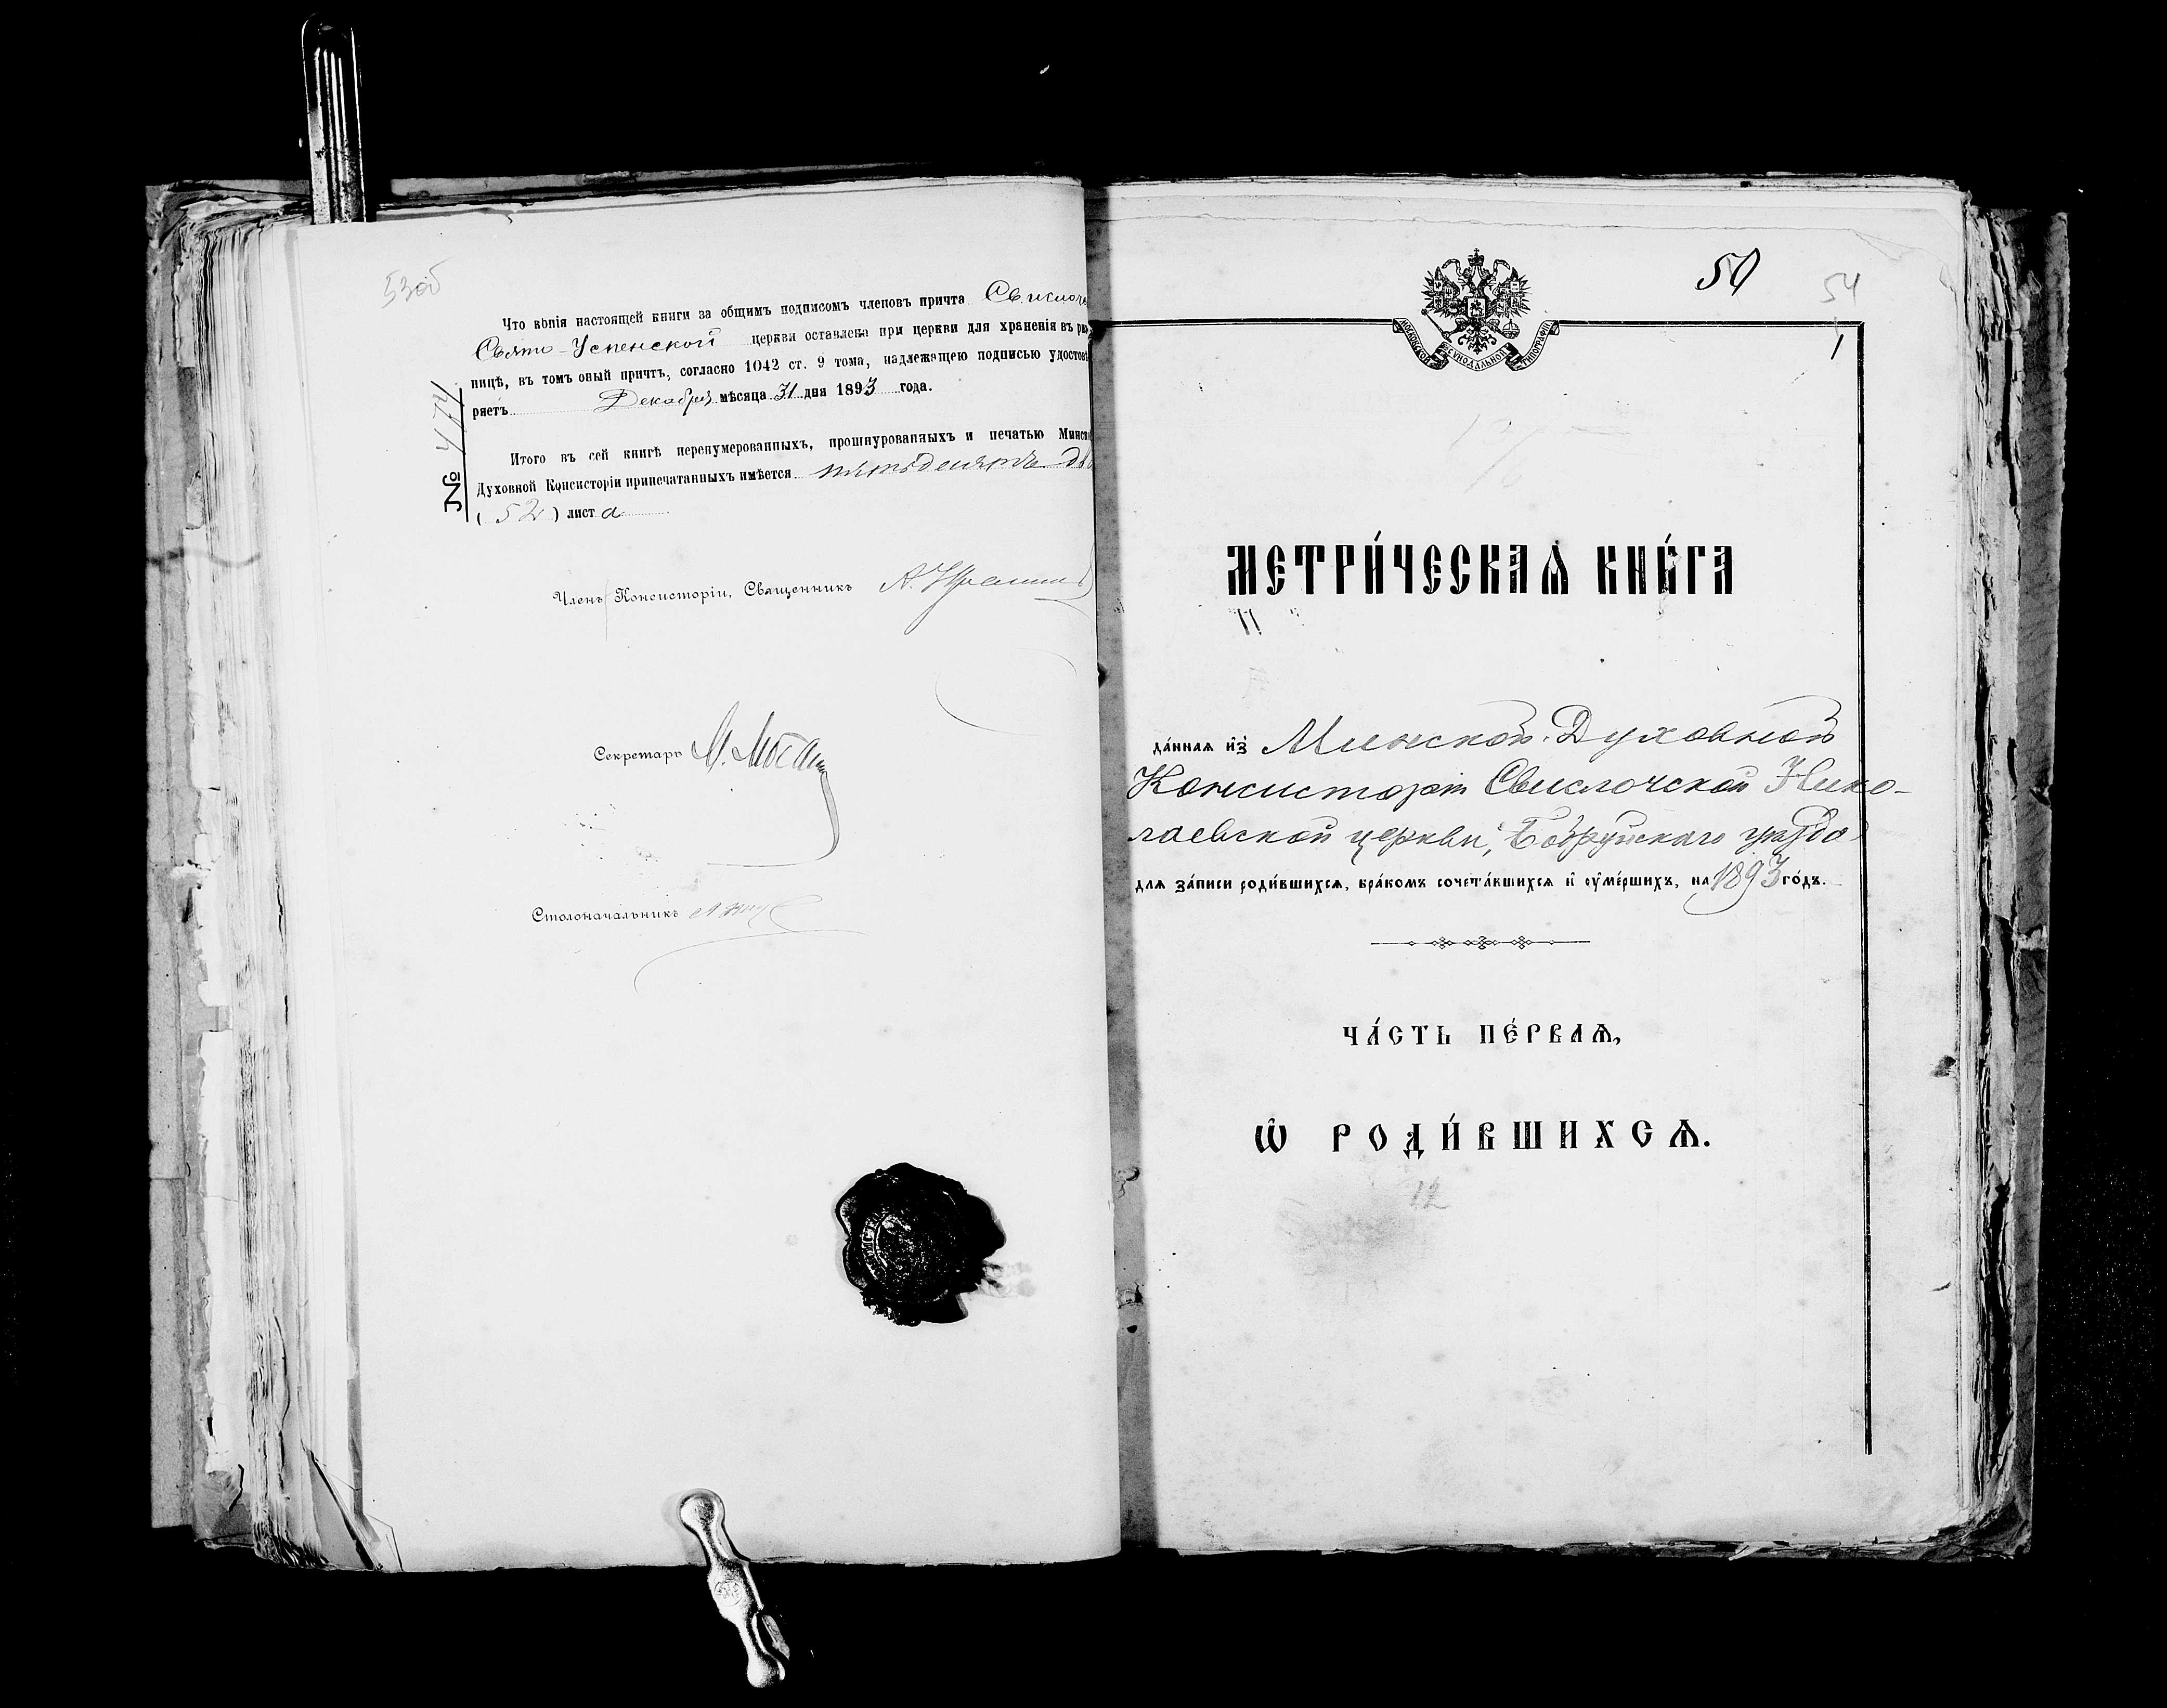 53об
Что копія настоящей книги за общимъ подписомъ членовъ причта Свислоч
Свято-Успенской церкви оставлена при церкви для храненія въ риз
ницѣ, въ томъ оный причтъ, согласно 1042 ст. 9 тома, надлежащею подписью удостовѣ
ряетъ Декабря мѣсяца 31 дня 1893 года.
№ 4174
Итого въ сей книгѣ перенумерованныхъ, прошнурованныхъ и печатью Минск
Духовной Консисторіи припечатанныхъ имѣется пятьдесятъ дв
( 52 ) листа
Членъ Консисторіи, Священникъ
Секретарь
Столоначальникъ
54
1
МОСКОВСКОЙ СѴНОДАЛЬНОЙ ТИПОГРАФІИ
МЕТРИ́ЧЕСКАѦ КНИ́ГА
да́нная и҆з̾ Минской Духовной
Консисторіи Свислочской Нико-
лаевской церкви, Бобруйскаго уѣзда
для за́писи роди́вшихся, бра́комъ сочета́вшихся и҆ ѹ҆ме́ршихъ, на 1893 го́дъ.
ЧА́СТЬ ПЕ́РВАѦ,
Ѡ҆ РОДИ́ВШИХСѦ.
12